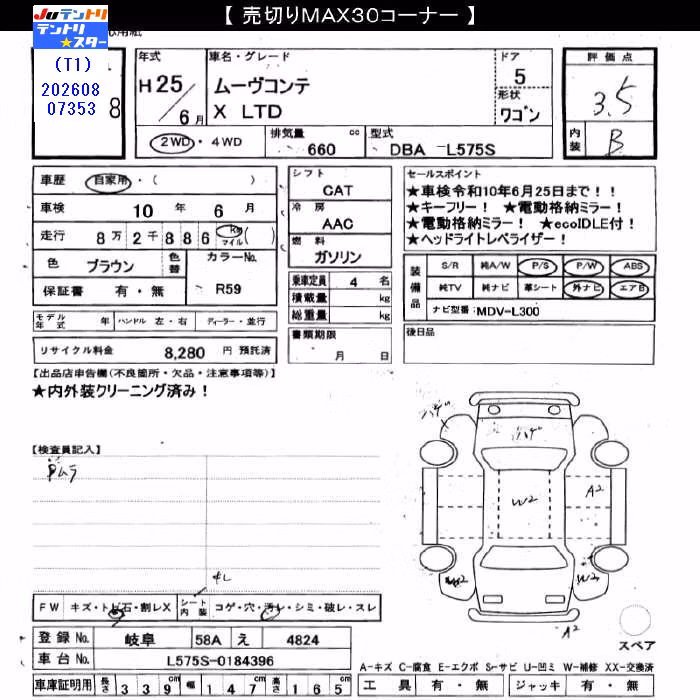 【 売切りMAX30コーナー 】
JUテントリ
テントリ★スター
(T1)
202608
07353
8
年式
H25/6月
車名・グレード
ムーヴコンテ
X LTD
ドア
5
形状
ワゴン
評価点
3.5
内装
B
2WD・4WD
排気量
660 cc
型式
DBA -L575S
車歴
自家用・( )
車検
10 年 6 月
走行
8万2千886 km マイル ( )
色
ブラウン
色替
カラーNo.
R59
保証書
有・無
シフト
CAT
冷房
AAC
燃料
ガソリン
乗車定員 4 名
積載量 kg
総重量 kg
セールスポイント
★車検令和10年6月25日まで！！
★キーフリー！ ★電動格納ミラー！
★電動格納ミラー！ ★ecoIDLE付！
★ヘッドライトレベライザー！
装備品
S/R 純A/W P/S P/W ABS
純TV 純ナビ 革シート 外ナビ エアB
ナビ型番: MDV-L300
モデル年式 年 ハンドル 左・右 ディーラー・並行
書類期限
月 日
後日品
リサイクル料金 8,280 円 預託済
【出品店申告欄(不良箇所・欠品・注意事項等)】
★内外装クリーニング済み！
【検査員記入】
ハゲ
ハゲ
W2
A2
W2
A2
A2
FW キズ・トビ石・割レX
シート内装 コゲ・穴・汚レ・シミ・破レ・スレ
登録No. 岐阜 58A え 4824
車台No. L575S-0184396
車庫証明用 長さ 339cm 幅 147cm 高さ 165cm
スペア
A-キズ C-腐食 E-エクボ S-サビ U-凹ミ W-補修 XX-交換済
工具 有・無 ジャッキ 有・無